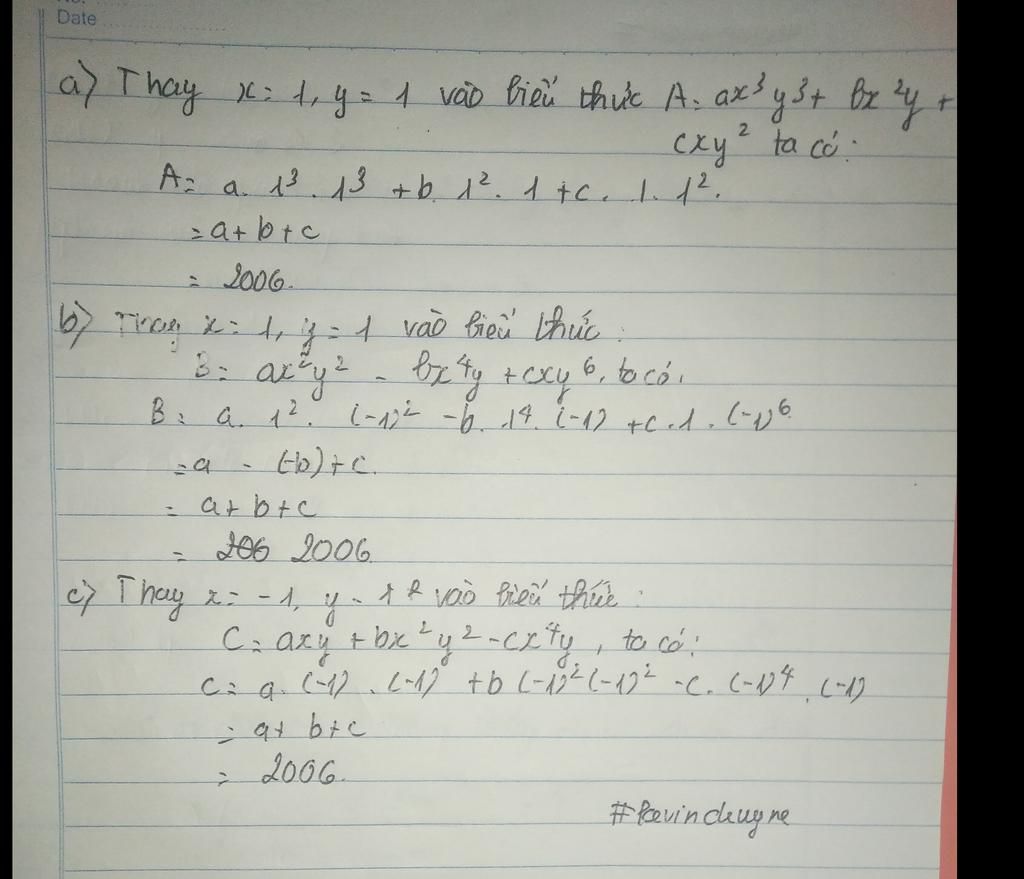 Date
a) Thay x = 1, y = 1 vào biểu thức A = ax³y³ + bx²y +
cxy² ta có:
A = a. 1³. 1³ + b. 1². 1 + c. 1. 1².
= a + b + c
= 2006.
b) Thay x = 1, y = 1 vào biểu thức:
B = ax²y² - bx⁴y + cxy⁶, ta có,
B = a. 1². (-1)² - b. 1⁴. (-1) + c. 1. (-1)⁶
= a - (-b) + c.
= a + b + c
= 2006
c) Thay x = -1, y - 1 vào biểu thức:
C = axy + bx²y² - cx⁴y, ta có:
C = a. (-1). (-1) + b (-1)² (-1)² - c. (-1)⁴. (-1)
= a + b + c
= 2006.